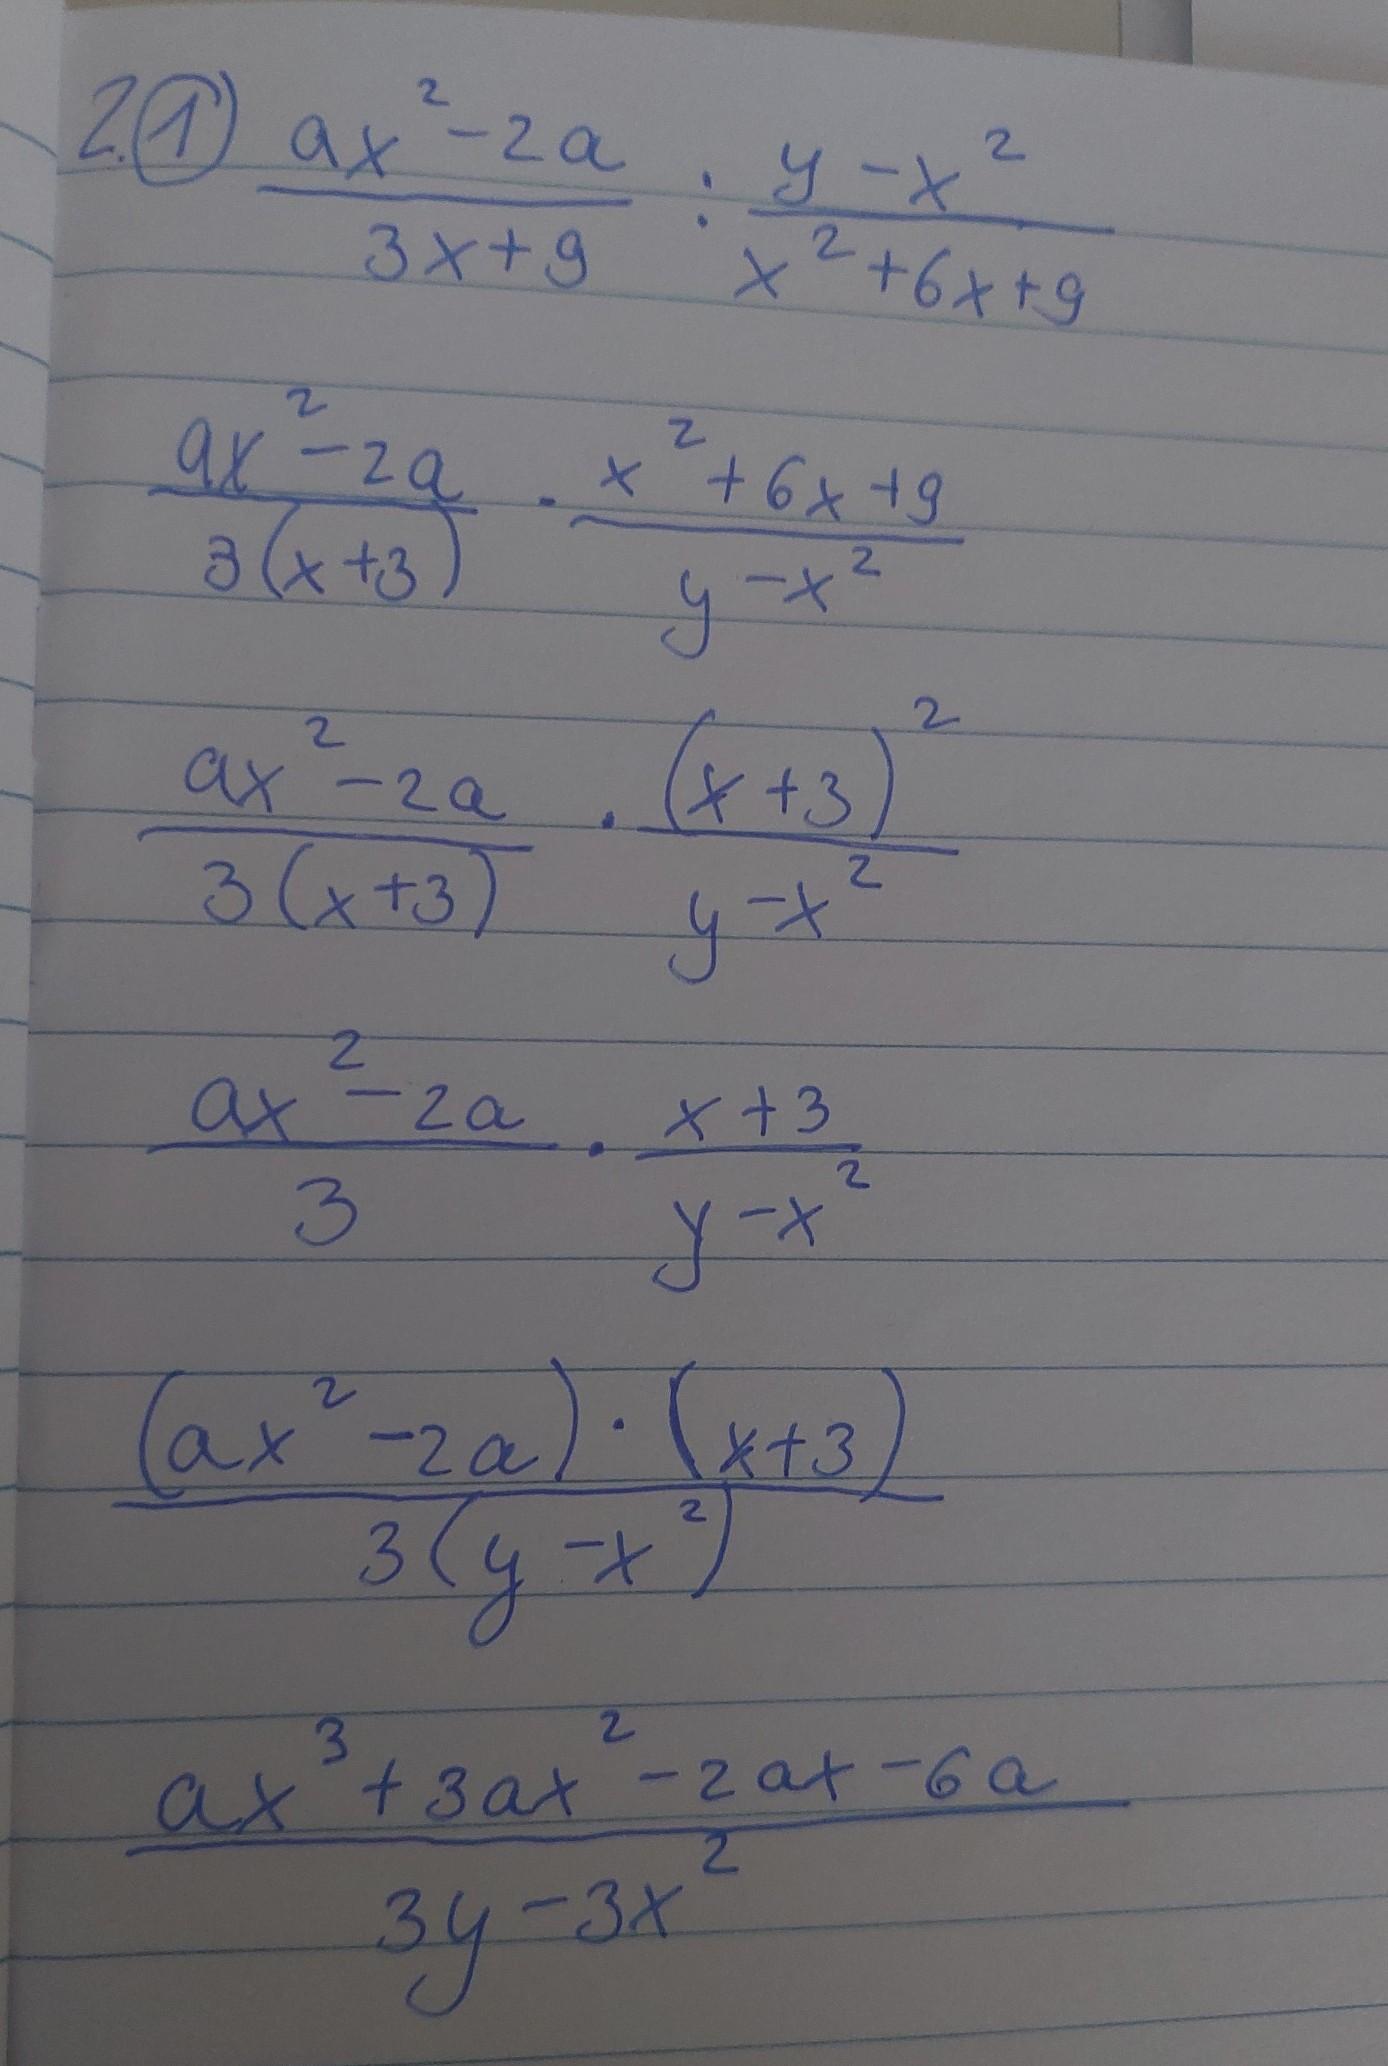 2.① (ax² - 2a)/(3x + 9) : (y - x²)/(x² + 6x + 9)
(ax² - 2a)/(3(x + 3)) · (x² + 6x + 9)/(y - x²)
(ax² - 2a)/(3(x + 3)) · (x + 3)²/(y - x²)
(ax² - 2a)/3 · (x + 3)/(y - x²)
((ax² - 2a) · (x + 3))/(3(y - x²))
(ax³ + 3ax² - 2ax - 6a)/(3y - 3x²)